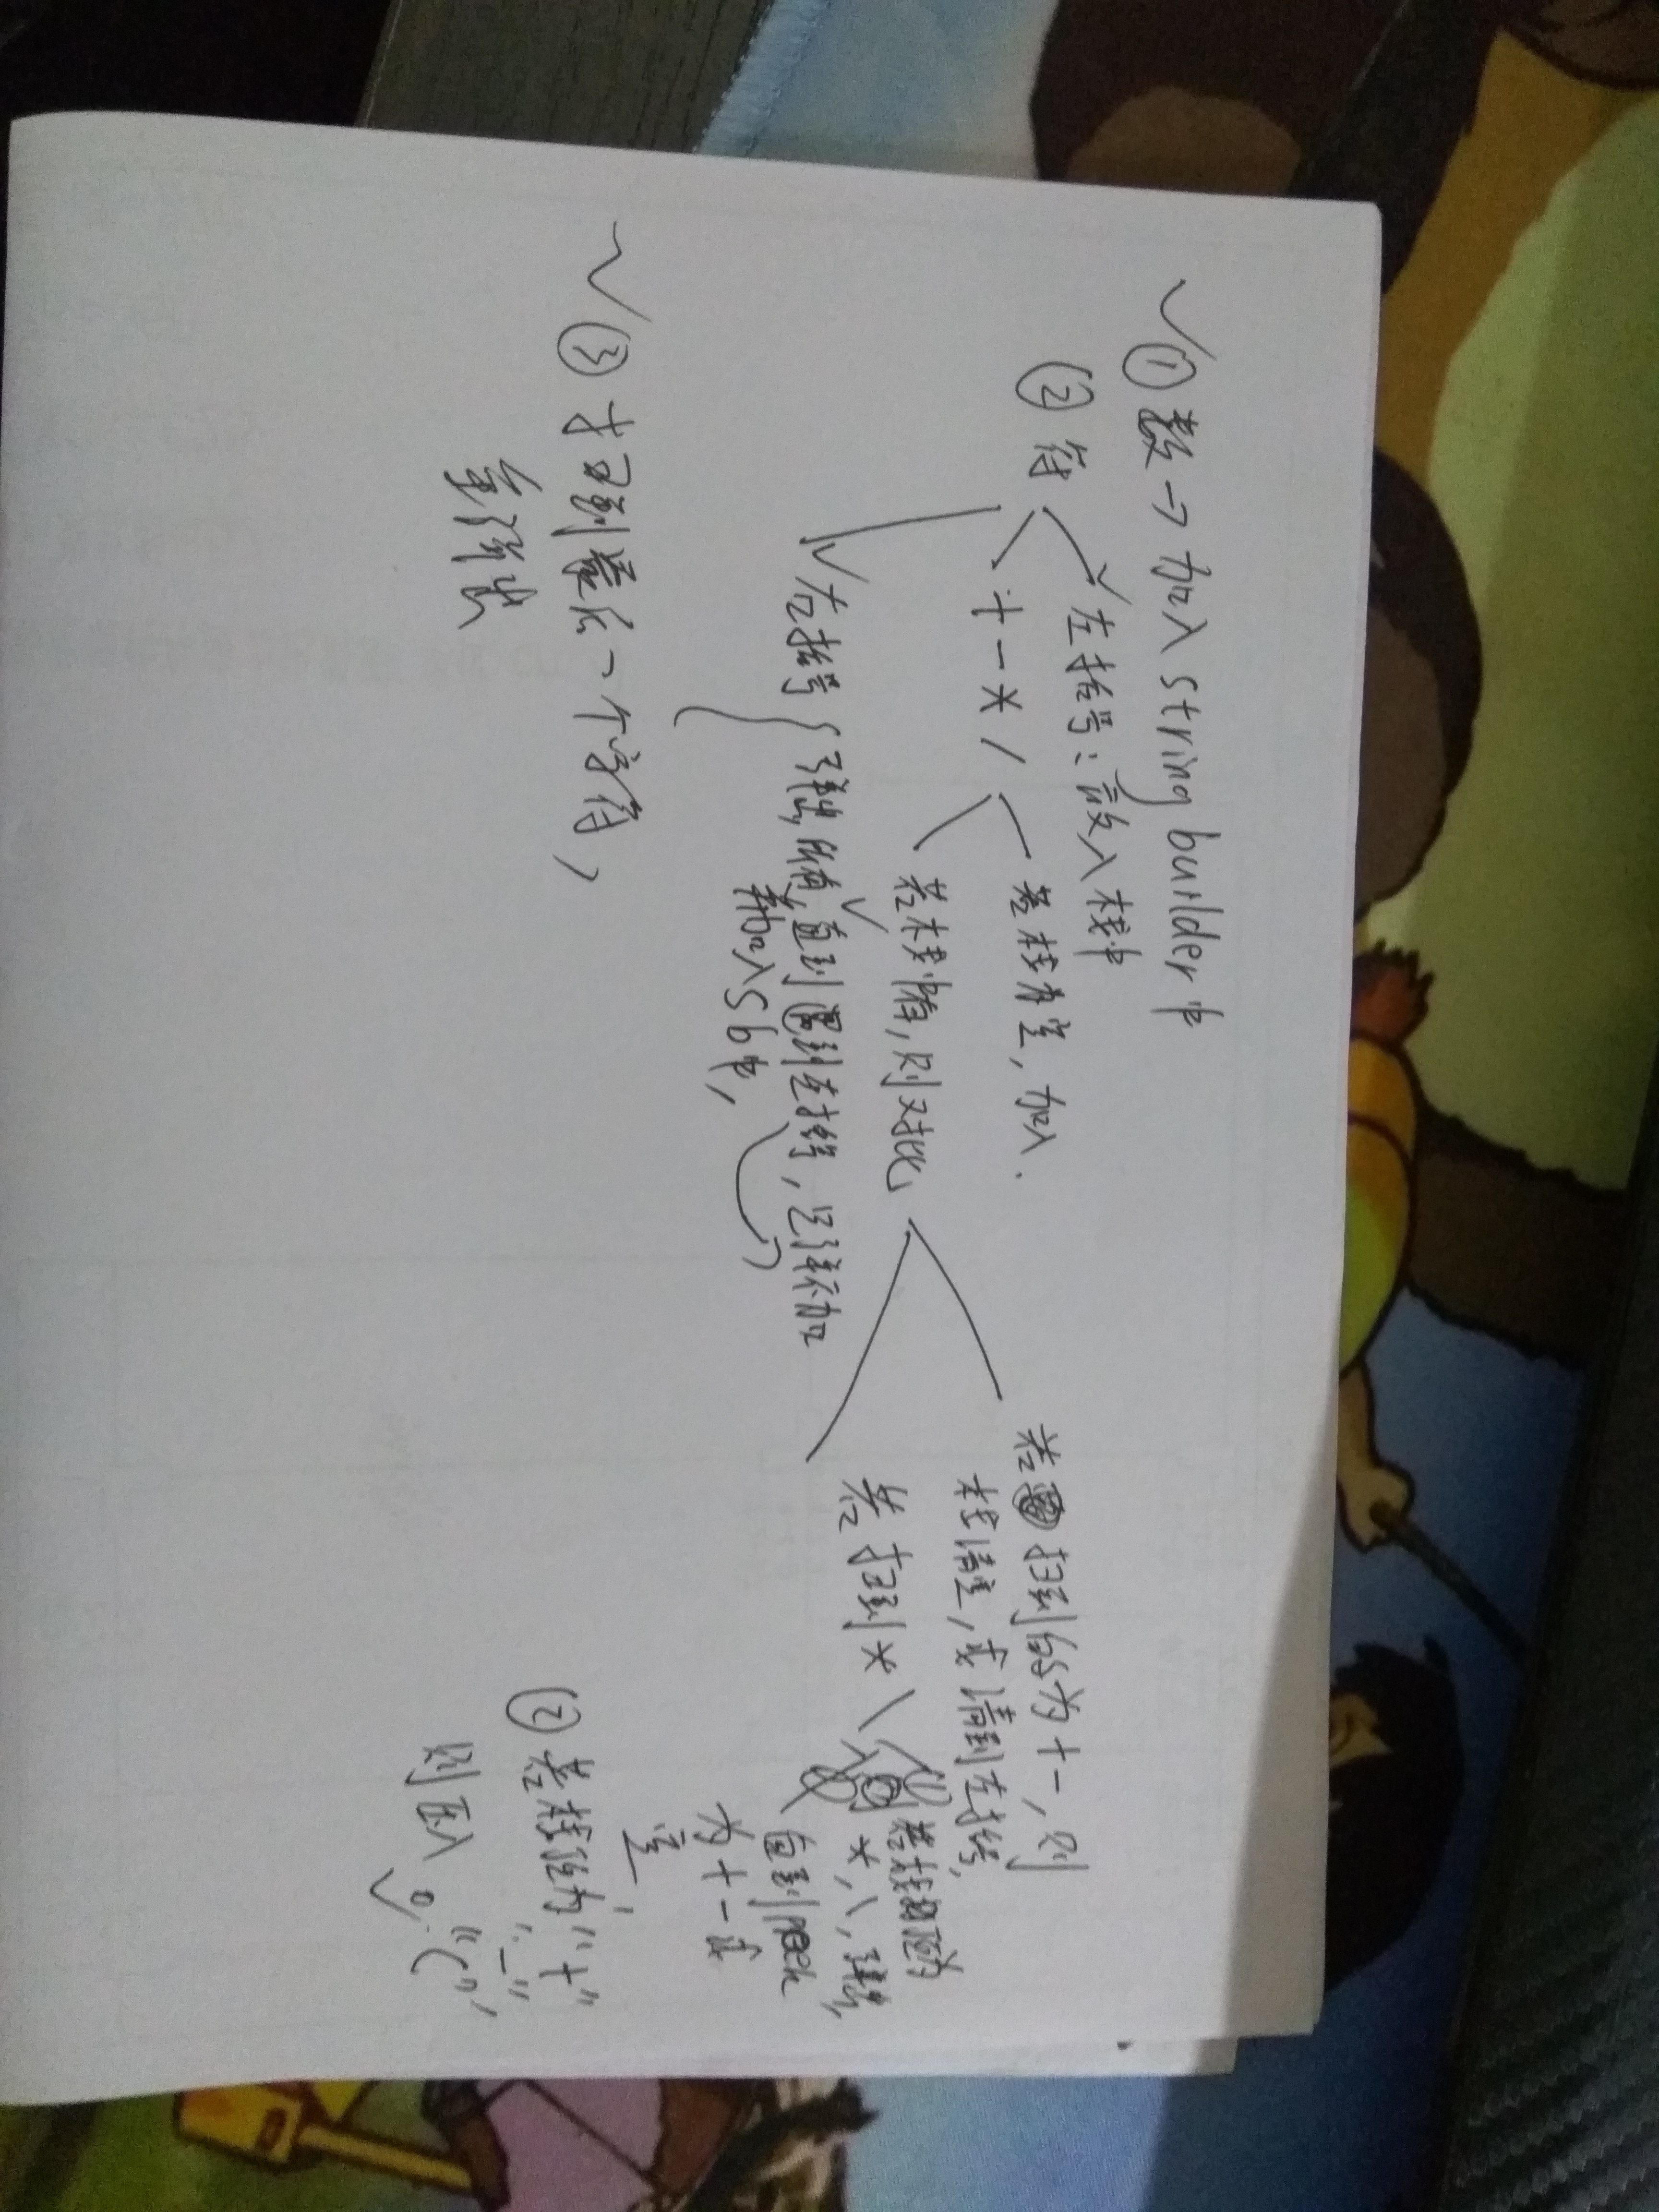 ① 数→加入 string builder 中
② 符
左括号：放入栈中
+ - * /
若栈为空，加入.
若栈中有，则对比
若扫到的为 + -，则
栈清空，或清到左括号，
若扫到 * \
① 若栈顶为
*，\，弹出，
直到 peek
为 + - 或
空，
② 若栈顶为 "+"
"-"，
则压入 "("
右括号 { 弹出所有，直到遇到左括号，只弹不加
并加入 sb 中，
③ 扫到最后一个字符，
全弹出